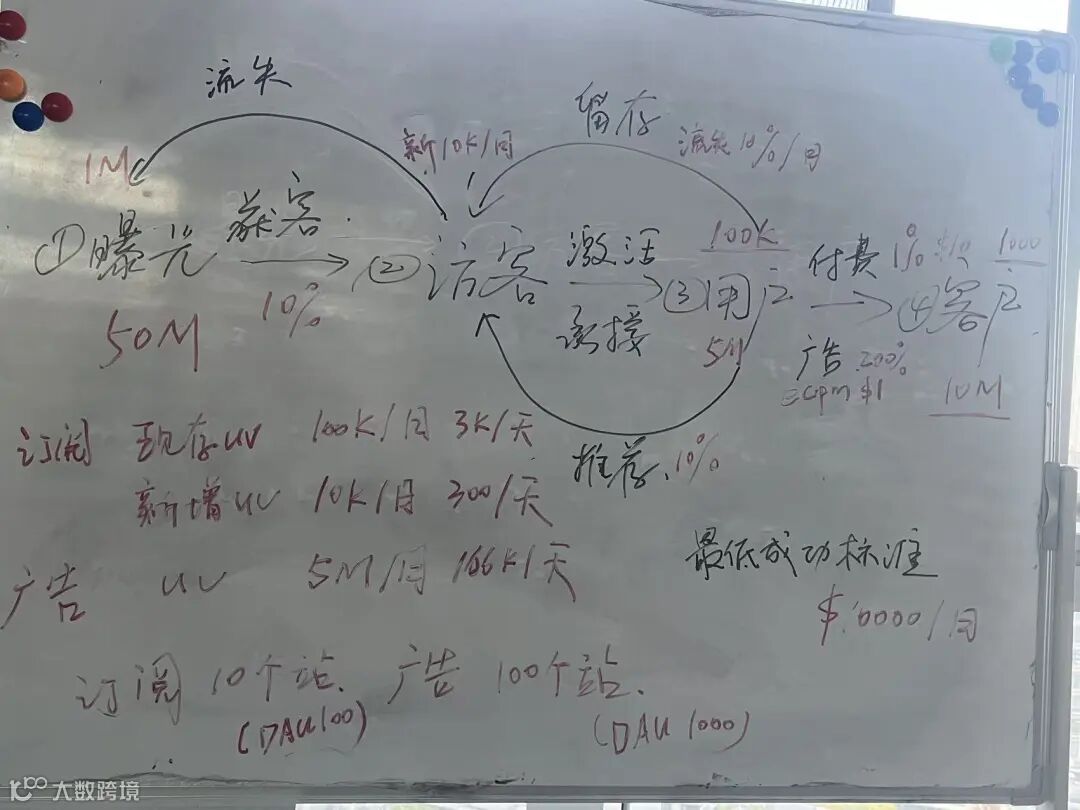 流失
留存
新10K/月
流失10%/月
1M
①曝光
获客
②访客
激活
100K
③用户
付费1%
1000
④客户
10%
50M
承接
5M
广告 200%
ecpm $1
10M
订阅 现存UV 100K/月 3K/天
推荐 10%
新增UV 10K/月 300/天
广告 UV 5M/月 166K/天
最低成功标准
$10000/月
订阅 10个站. 广告 100个站.
(DAU 100) (DAU 1000)
大数跨境